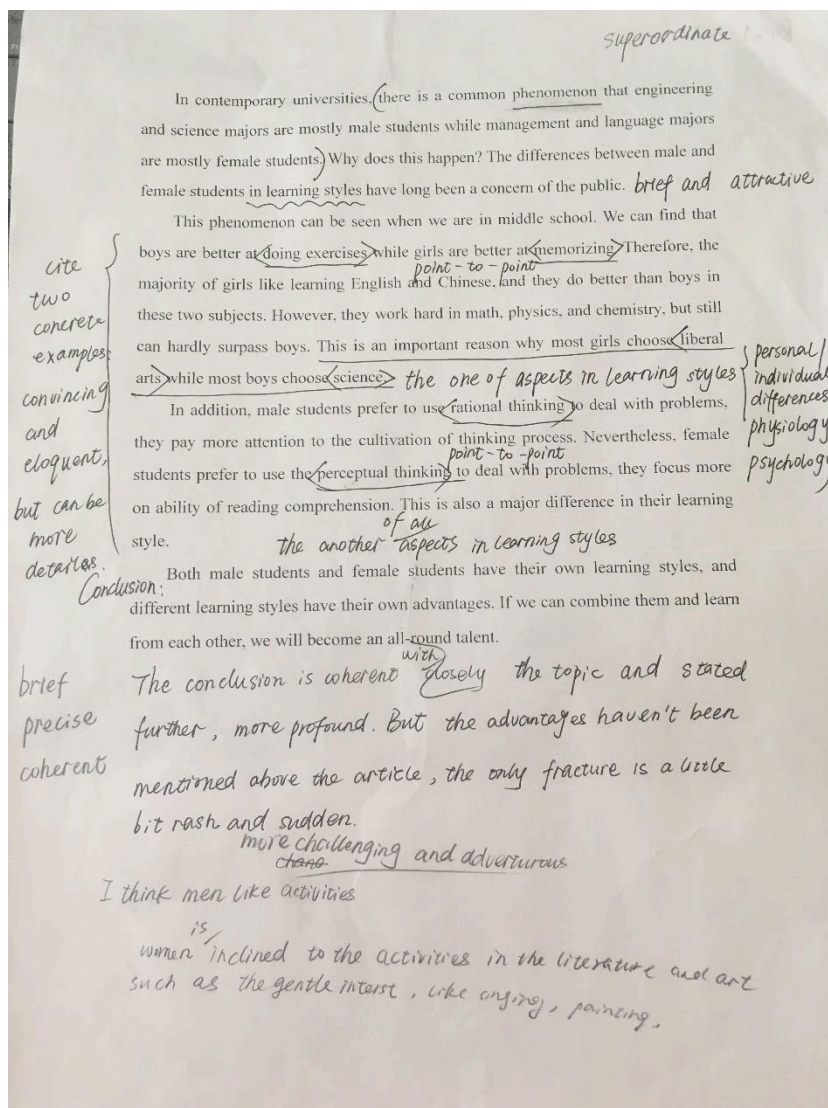 superordinate
In contemporary universities, there is a common phenomenon that engineering
and science majors are mostly male students while management and language majors
are mostly female students. Why does this happen? The differences between male and
female students in learning styles have long been a concern of the public. brief and attractive
This phenomenon can be seen when we are in middle school. We can find that
boys are better at doing exercises while girls are better at memorizing. Therefore, the
point-to-point
majority of girls like learning English and Chinese, and they do better than boys in
these two subjects. However, they work hard in math, physics, and chemistry, but still
can hardly surpass boys. This is an important reason why most girls choose liberal
arts while most boys choose science. the one of aspects in learning styles
personal/
individual
differences
physiology
psychology
cite
two
concrete
examples
convincing
and
eloquent,
but can be
more
details.
In addition, male students prefer to use rational thinking to deal with problems,
they pay more attention to the cultivation of thinking process. Nevertheless, female
point-to-point
students prefer to use the perceptual thinking to deal with problems, they focus more
on ability of reading comprehension. This is also a major difference in their learning
style.
of all
the another aspects in learning styles
Conclusion:
Both male students and female students have their own learning styles, and
different learning styles have their own advantages. If we can combine them and learn
from each other, we will become an all-round talent.
brief
precise
coherent
with
The conclusion is coherent closely the topic and stated
further, more profound. But the advantages haven't been
mentioned above the article, the only fracture is a little
bit rash and sudden.
more challenging and adverturous
I think men like activities
is
women inclined to the activities in the literature and art
such as the gentle interst, like singing, painting,